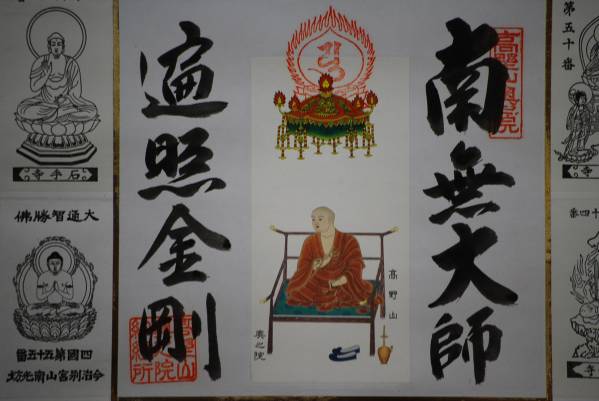 南無大師
遍照金剛
高野山
奥之院
高野山奥院
納経所
第五十番
石手寺
大通智勝佛
四國第五十五番
今治別宮山南光坊
寺
十四番
寺